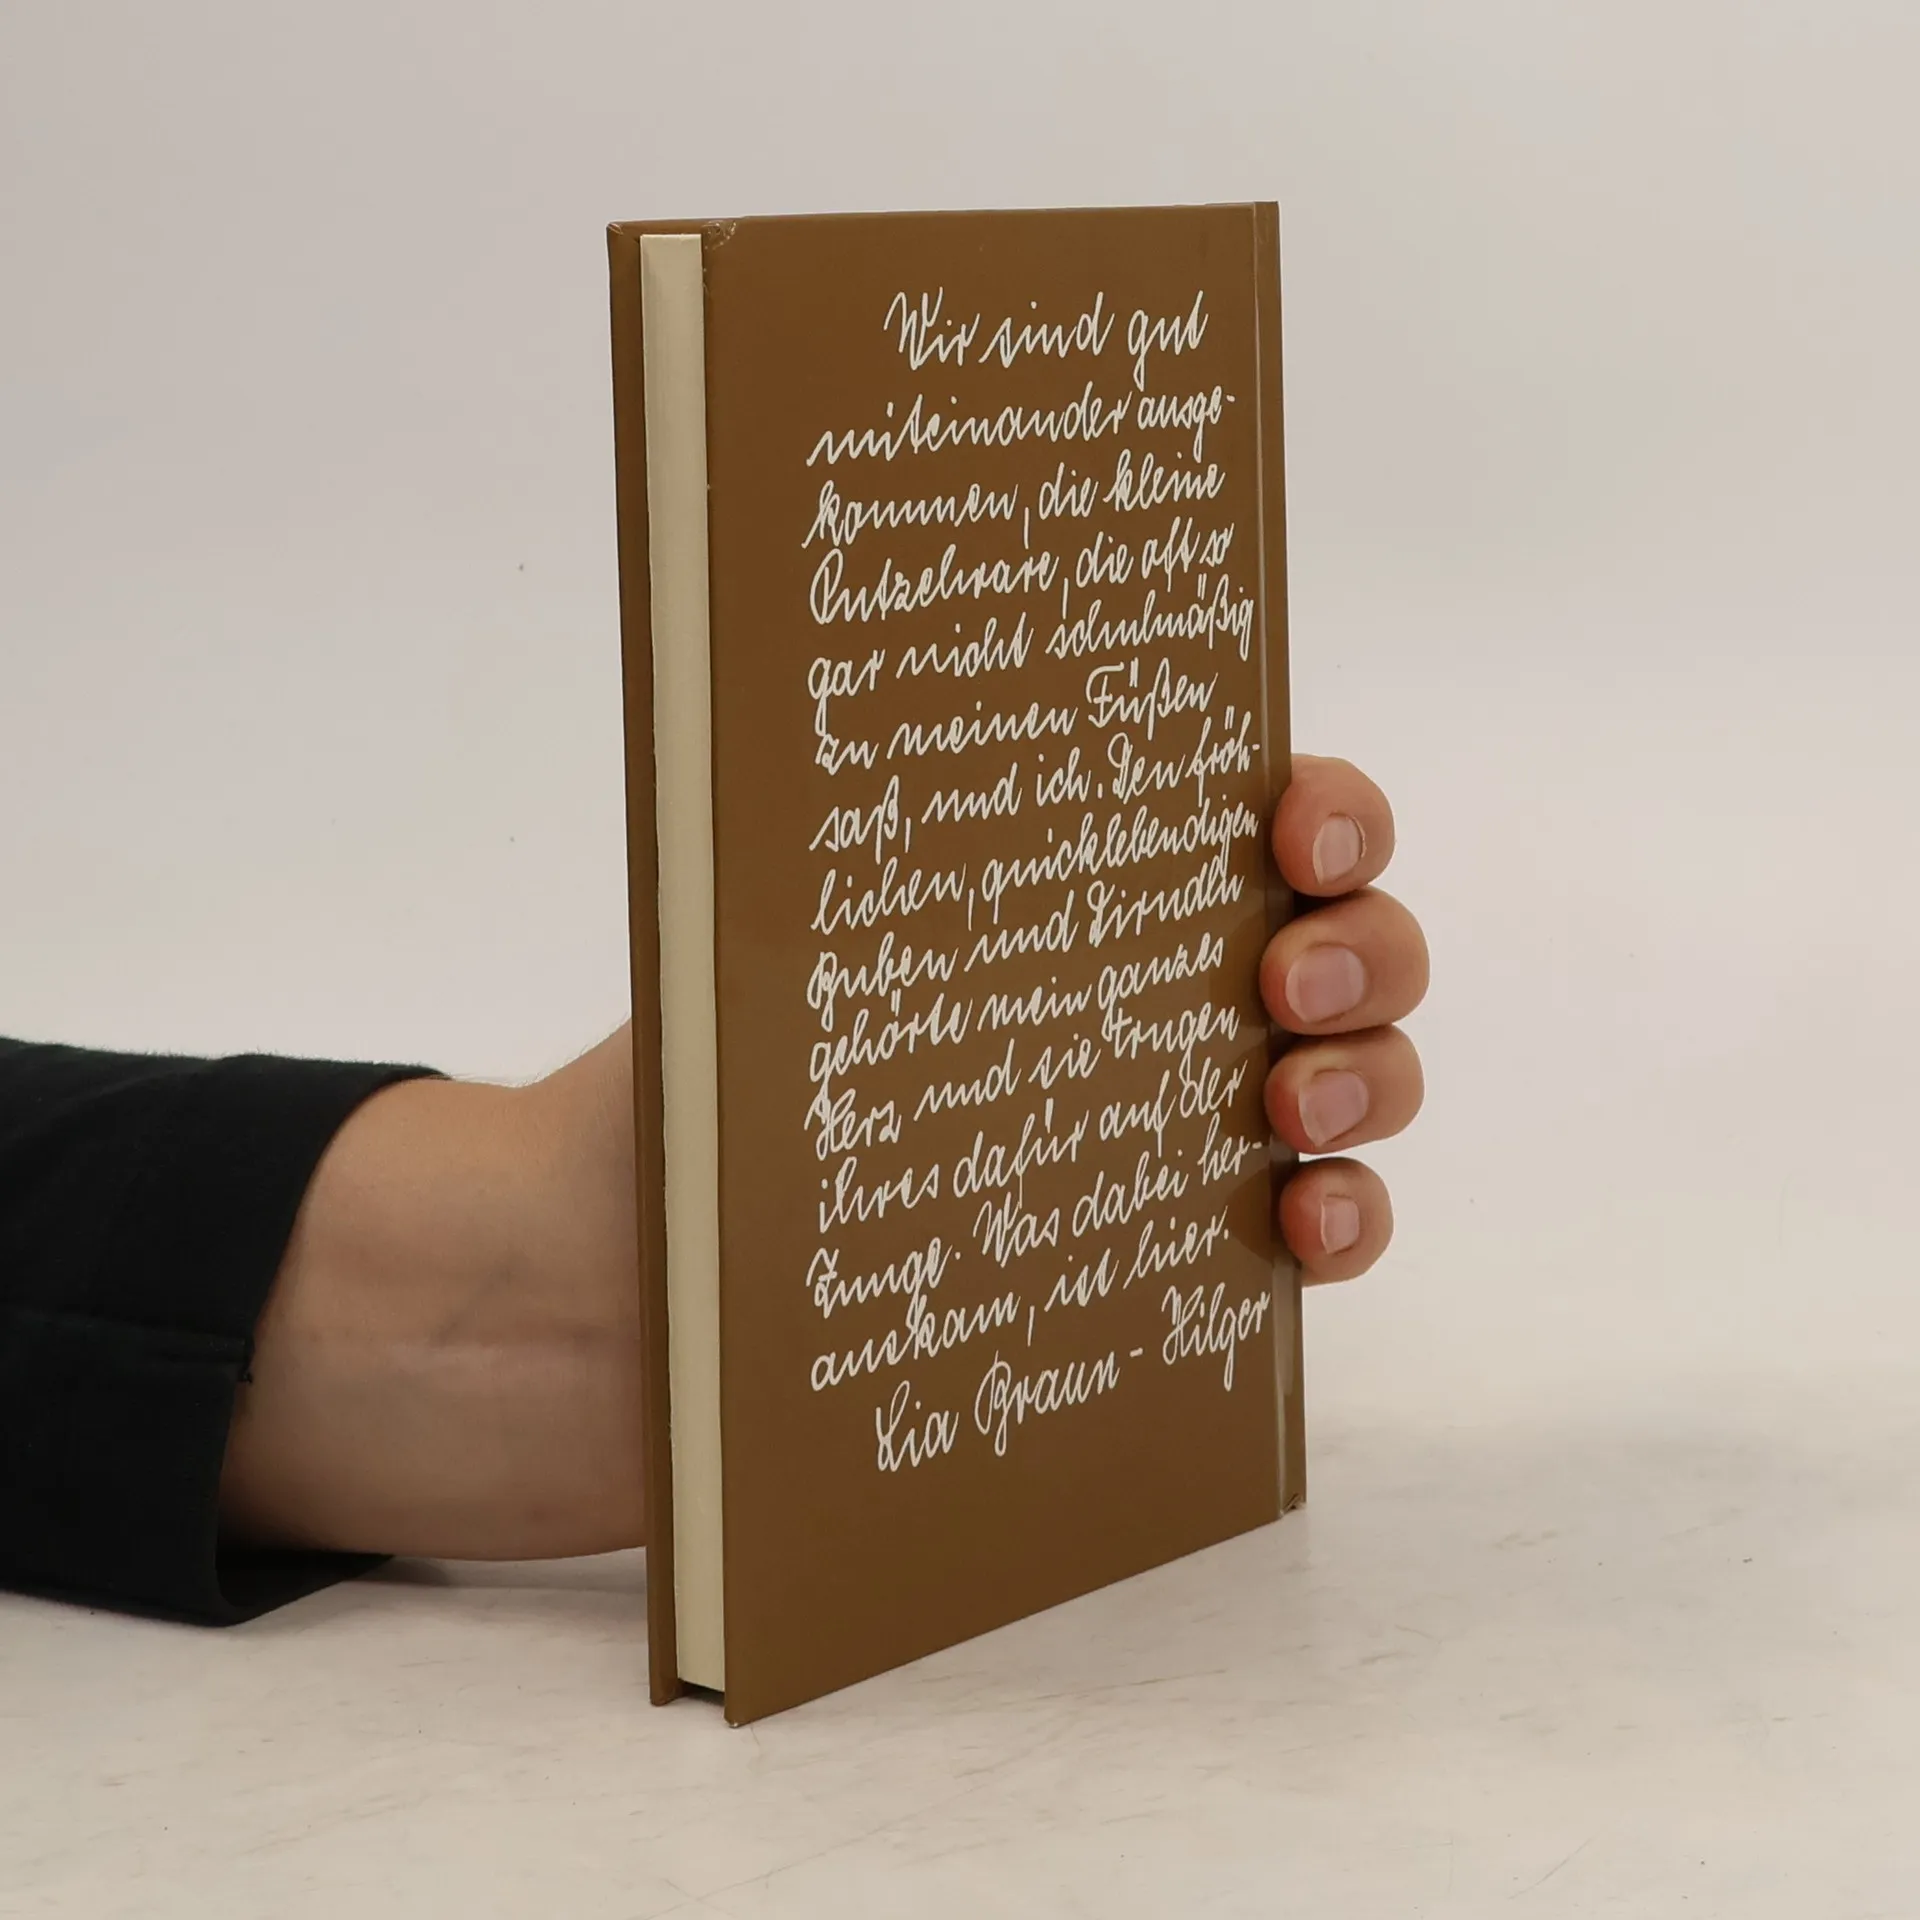 Wir sind gut
miteinander ausge-
kommen, die kleine
Putzelware, die oft so
gar nicht schulmäßig
zu meinen Füßen
saß, und ich. Den fröh-
lichen, quicklebendigen
Buben und Dirndln
gehörte mein ganzes
Herz und sie trugen
ihres dafür auf der
Zunge. Was dabei her-
auskam, ist hier.
Lia Braun-Hilger